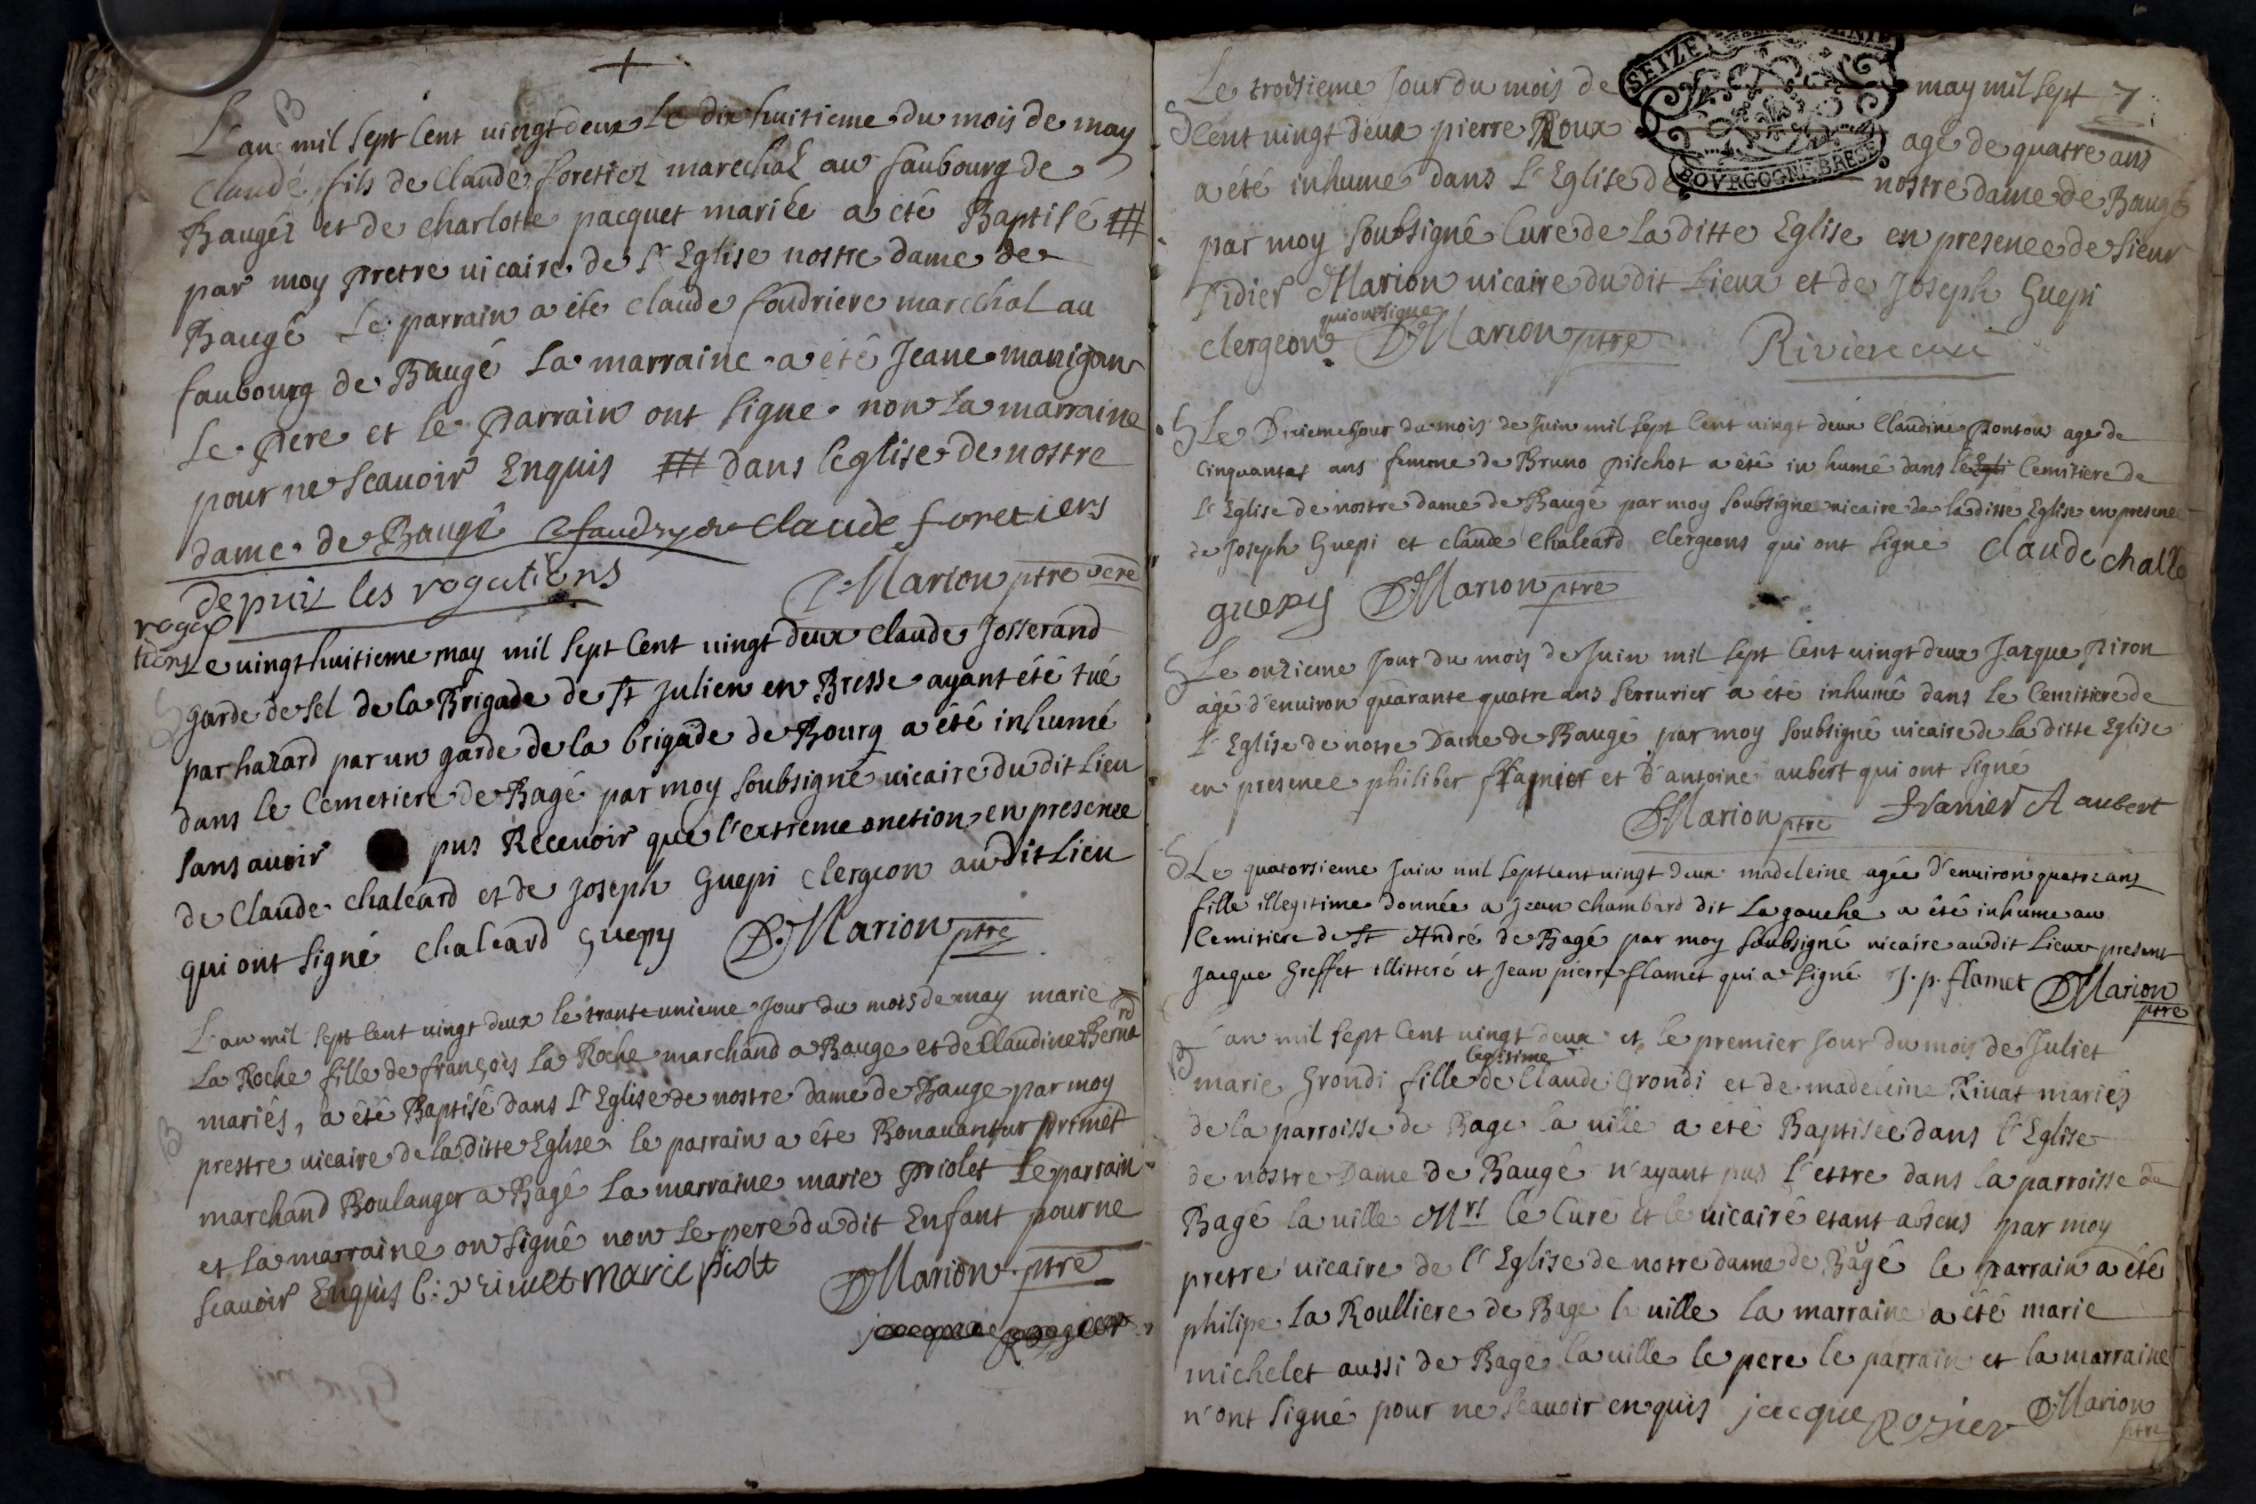 B
L'an mil sept cent vingt deux Le dix huitieme du mois de may
Claude fils de Claude foretier marechal au faubourg de
Baugéz et de charlotte pacquet mariée a été Baptisé #
par moy pretre vicaire de l'Eglise nostre dame de
Baugé Le parrain a été claude foudriere marechal au
faubourg de Baugé La marraine a été Jeane manigan
Le pere et le parrain ont signe non La marraine
pour ne scavoir Enquis # dans l'eglise de nostre
dame de Baugé Claude foretiers
depuis les rogations D. Marion ptre vcre
roga
tions Le vingt huitieme may mil sept cent vingt deux claude Josserand
S garde de sel de la Brigade de St Julien en Bresse ayant été tué
par hazard par un garde de la brigade de Bourg a été inhumé
dans le Cemetiere de Bagé par moy soubsigné vicaire du dit Lieu
sans avoir pus Recevoir que l'extreme onction en presence
de Claude chaleard et de Joseph Guepi clergeon au dit Lieu
qui ont signé chaleard guepy D. Marion ptre
L'an mil sept cent vingt deux le trante unieme jour du mois de may marie
La Roche fille de françois La Roche marchand a Bauge et de Claudine Bernard
mariés, a été Baptisé dans l'Eglise de nostre dame de Bauge par moy
B prestre vicaire de la ditte Eglise le parrain a été Bonavantur primet
marchand Boulanger a Bagé La marraine marie priolet Le parrain
et La marraine on signé non Le pere du dit Enfant pour ne
scavoir Enquis b: primet marie piolt D Marion ptre
Le troisieme Jour du mois de may mil sept 7
SEIZE
BOVRGOGNE BRESE
S cent vingt deux pierre Roux agé de quatre ans
a été inhumé dans l'Eglise de nostre dame de Baugé
par moy soubsigné Curé de La ditte Eglise en presence de sieur
Didier Marion vicaire du dit Lieux et de Joseph Guepi
clergeon qui ont signe D Marion ptre Riviere curé
S Le Dixieme Jour du mois de Juin mil sept cent vingt deux Claudine ponton age de
cinquantes ans femme de Bruno pischot a été in humé dans le Egli Cemitiere de
l'Eglise de nostre dame de Baugé par moy soubsigne vicaire de la ditte Eglise en presence
de Joseph Guepi et claude chaleard clergeons qui ont signe claude challe
guepy D Marion ptre
S Le onzieme Jour du mois de Juin mil sept cent vingt deux Jacque piron
agé d'environ quarante quatre ans serrurier a été inhumé dans le Cemitiere de
l'Eglise de notre Dame de Baugé par moy soubsigné vicaire de la ditte Eglise
en presence philiber et d'antoine aubert qui ont signé
D Marion ptre A aubert
S Le quatorsieme Juin mil sept cent vingt deux madeleine agée d'environ quatre ans
fille illegitime donnée a Jean chambard dit La gauche a été inhume au
Cemitiere de St André de Bagé par moy soubsigné vicaire audit Lieux present
Jacque Greffet illitteré et Jean pierre flamet qui a signé J. p. flamet D Marion
ptre
B L'an mil sept cent vingt deux et le premier Jour du mois de Juliet
marie Grondi fille legitime de Claude Grondi et de madeleine Rivat mariés
de la parroisse de Bage la ville a été Baptisée dans l'Eglise
de nostre Dame de Baugé n'ayant pus l'ettre dans la parroisse de
Bagé la ville Mrs le Curé et le vicaire etant absens par moy
pretre vicaire de l'Eglise de notre dame de Baugé le parrain a été
philipe La Roulliere de Bage la ville la marraine a été marie
michelet aussi de Bage la ville le pere le parrain et la marraine
n'ont signé pour ne scavoir enquis jacque Rosier D Marion
ptre